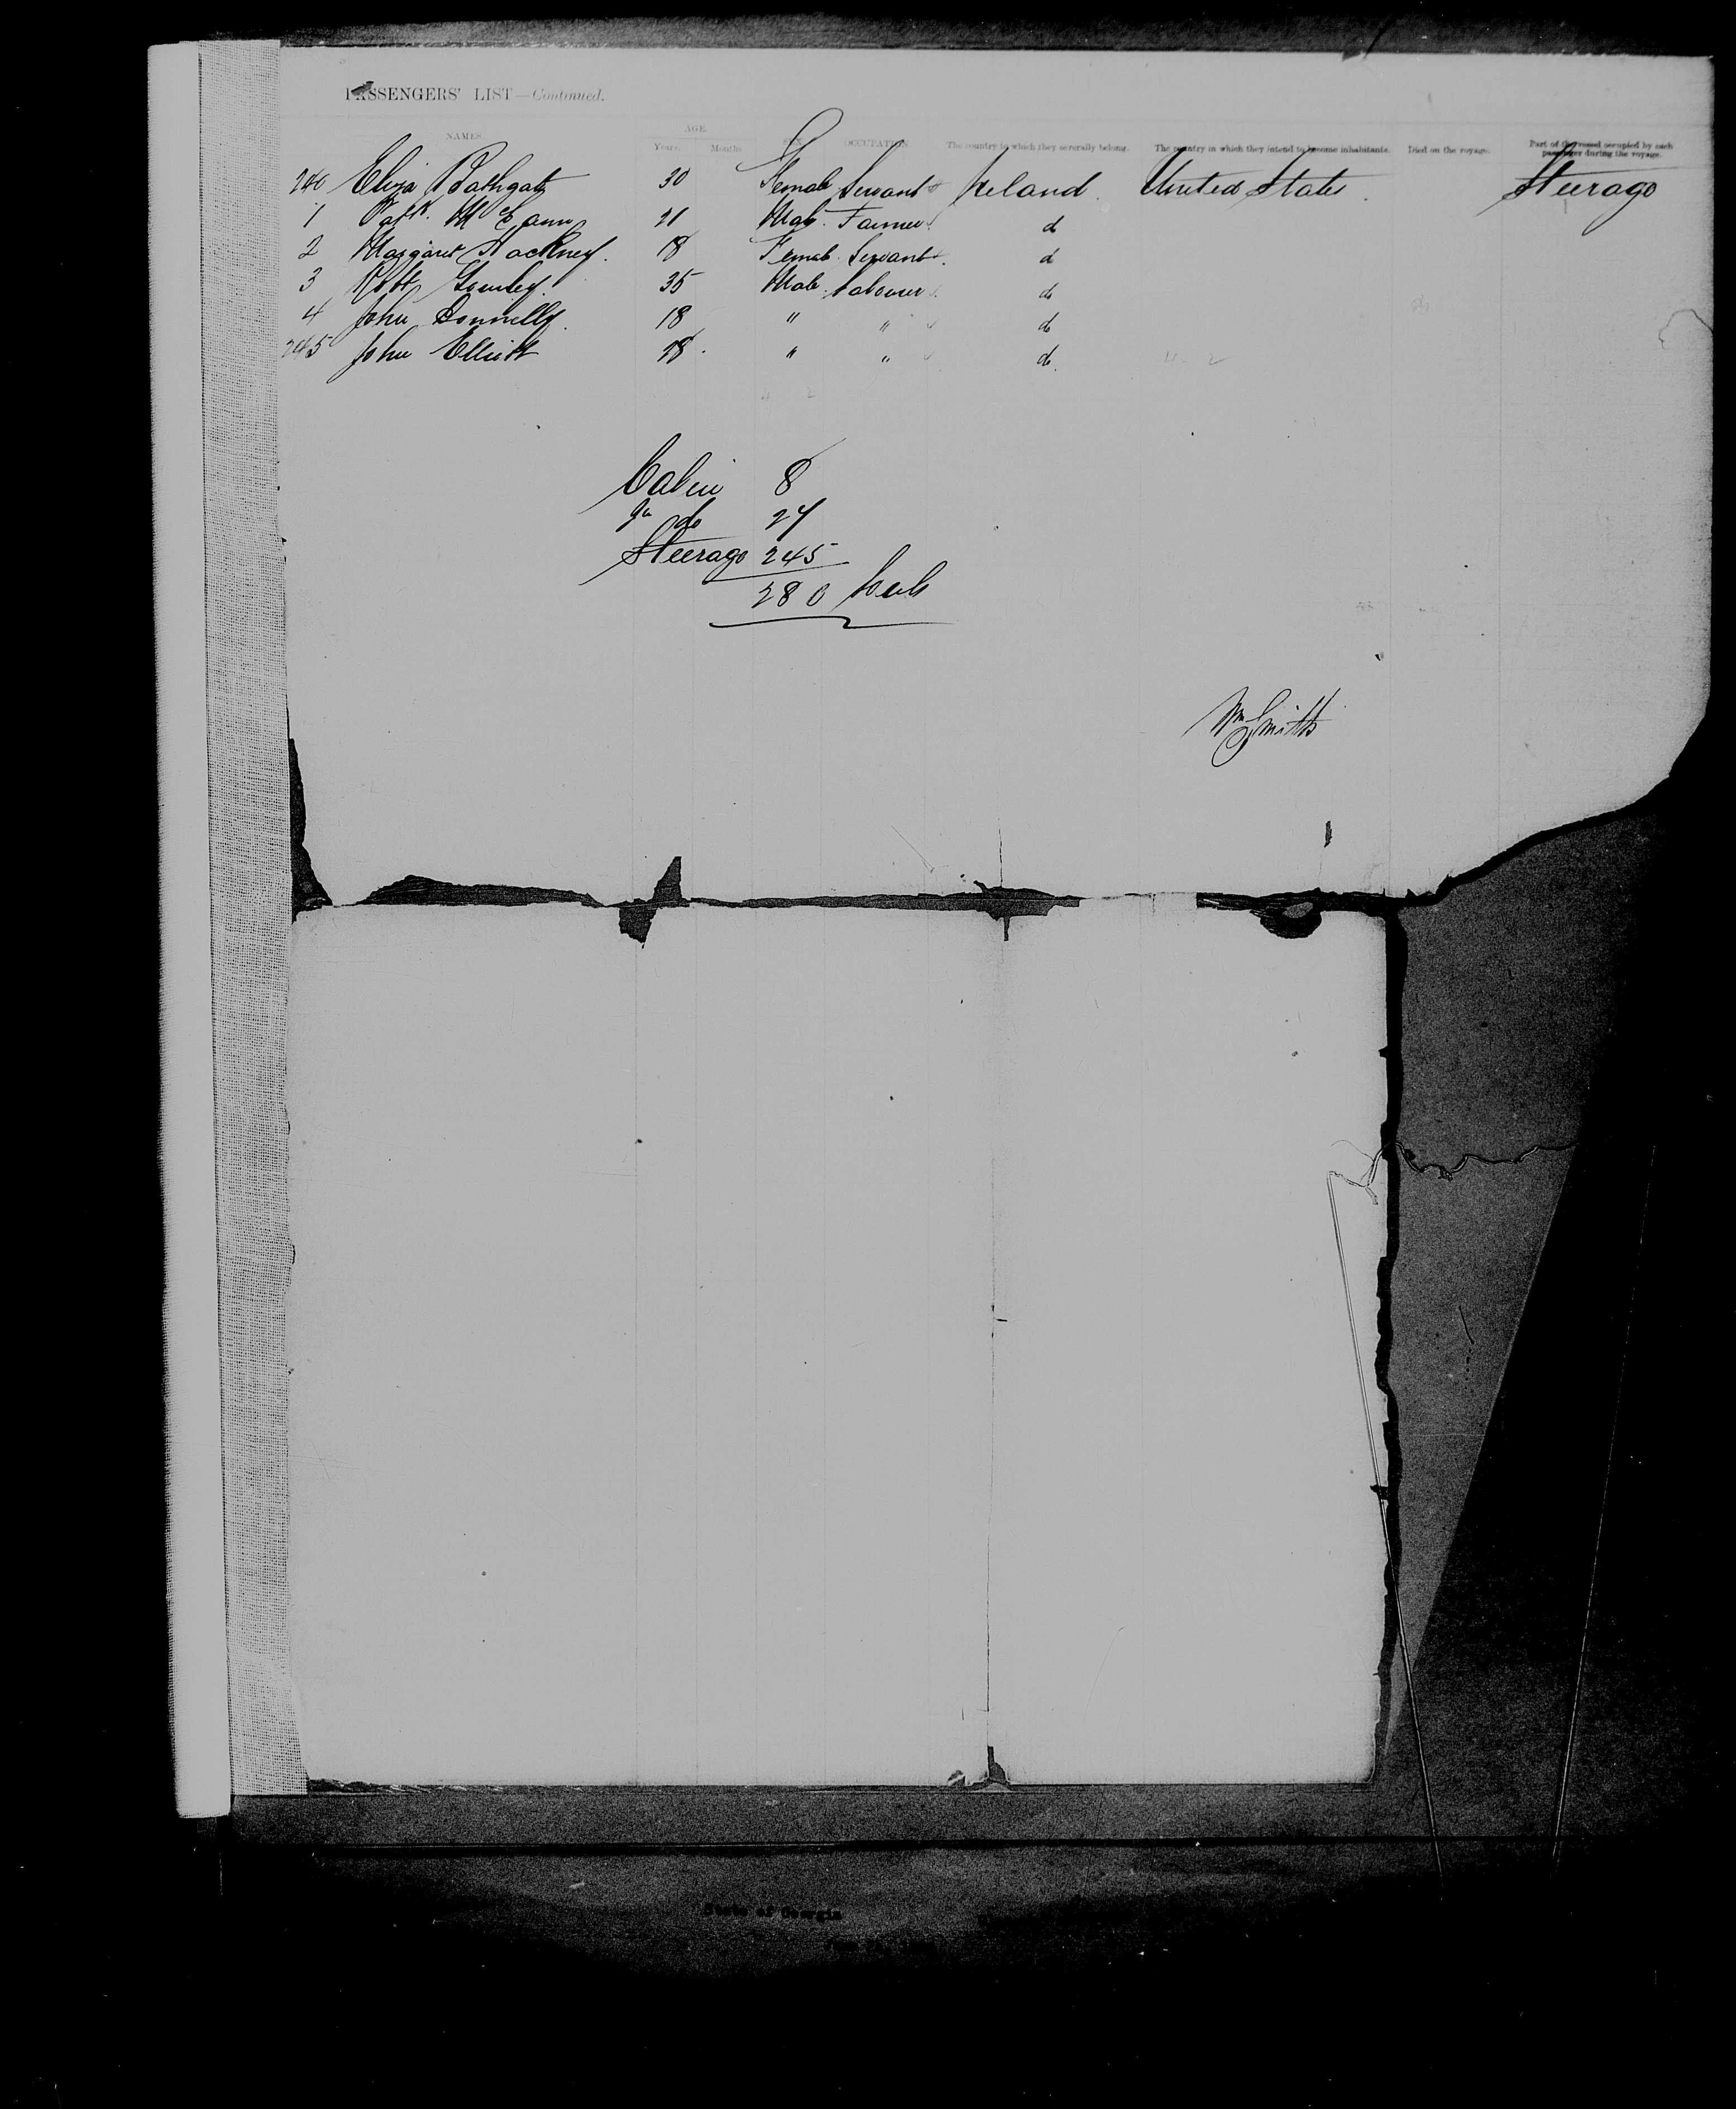 PASSENGERS' LIST—Continued.
NAMES. AGE. Years. Months. SEX. OCCUPATION. The country to which they severally belong. The country in which they intend to become inhabitants. Died on the voyage. Part of the vessel occupied by each passenger during the voyage.
240 Eliza Bathgate 30 Female Servant Ireland. United States. Steerage
1 Patk. McCann 21 Male. Farmer do
2 Margaret Hackney. 18 Female. Servant. do
3 Robt Gourley. 35 Male. Labourer do
4 John Donnelly. 18 " " do
245 John Elliott 28. " " do.
Cabin 8
do 27
Steerage 245
280 Souls
Wm Smith
State of Georgia